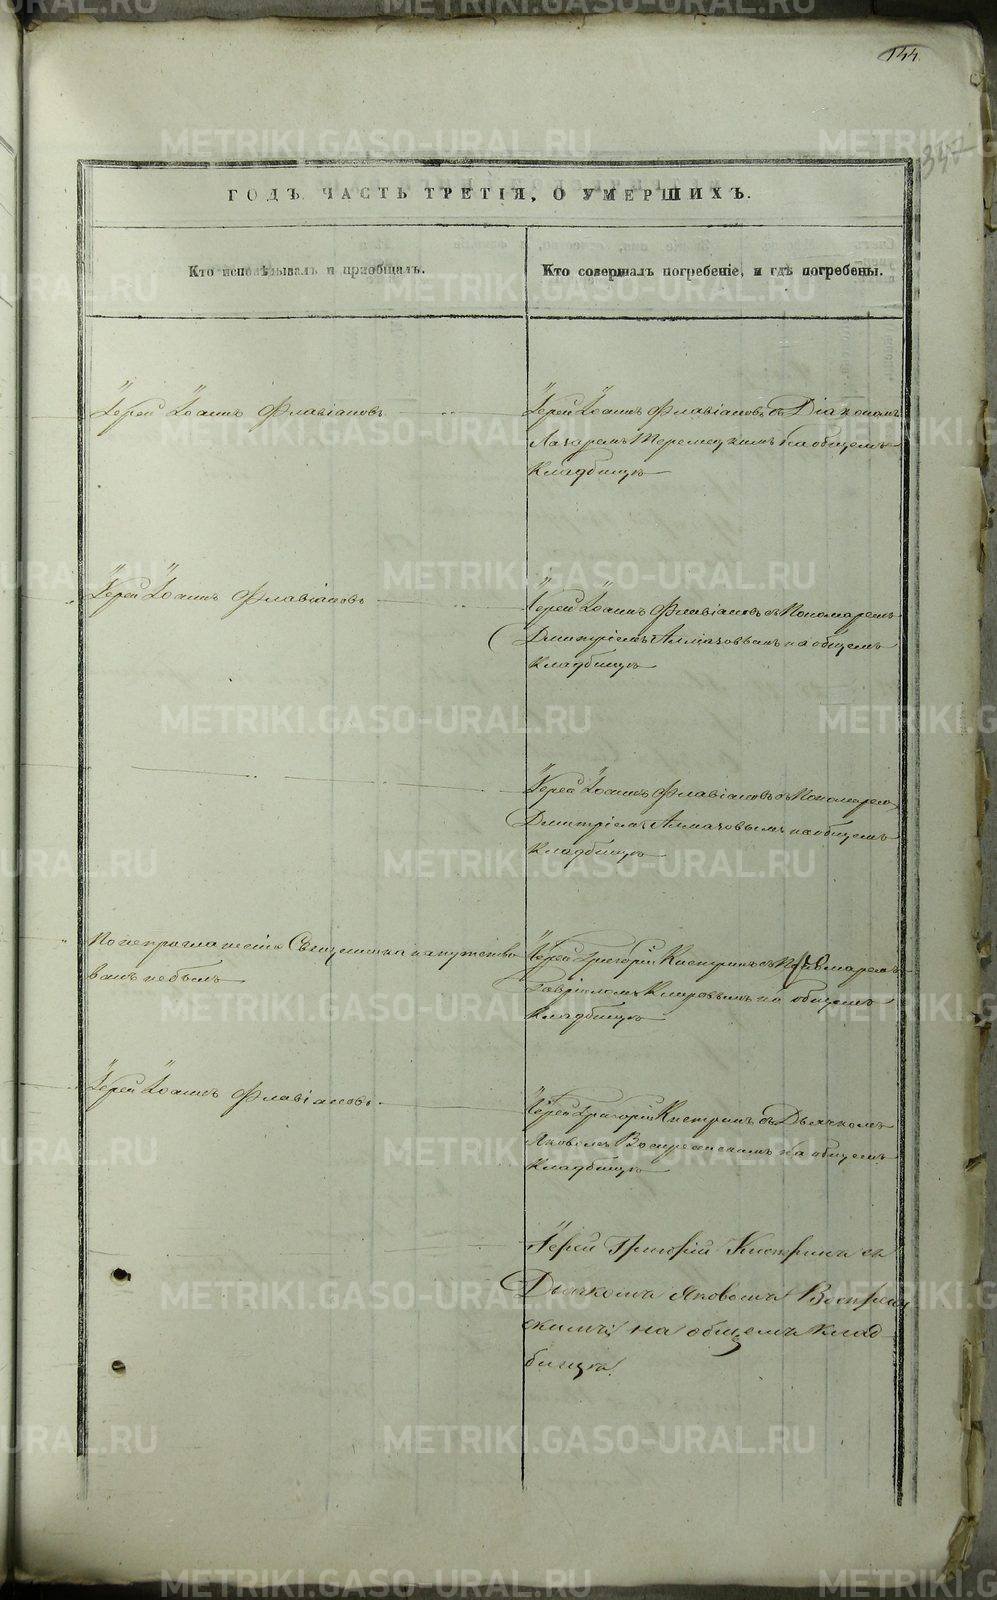 144
347
ГОДЪ ЧАСТЬ ТРЕТІЯ, О УМЕРШИХЪ.
Кто исповѣдывалъ и приобщалъ.
Кто совершалъ погребеніе, и гдѣ погребены.
Іерей Іоаннъ Флавіановъ
Іерей Іоаннъ Флавіановъ съ Діакономъ
Лазаремъ на общемъ
Кладбищѣ
Іерей Іоаннъ Флавіановъ
Іерей Іоаннъ Флавіановъ съ Пономаремъ
Дмитріемъ Алмазовымъ на общемъ
Кладбищѣ
Іерей Іоаннъ Флавіановъ съ Пономарем
Дмитріемъ Алмазовымъ на общемъ
Кладбищѣ
По неприглашенію Священника напутство
ванъ небылъ
Іерей Григорій съ Пономаремъ
Гавріиломъ на общемъ
Кладбищѣ
Іерей Іоаннъ Флавіановъ
Іерей Григорій Кистринъ съ Дьячкомъ
Яковомъ Воскресенскимъ на общемъ
Кладбищѣ
Іерей Григорій Кистринъ съ
Дьячкомъ Яковомъ Воскресен
скимъ на общемъ клад
бищѣ.
METRIKI.GASO-URAL.RU